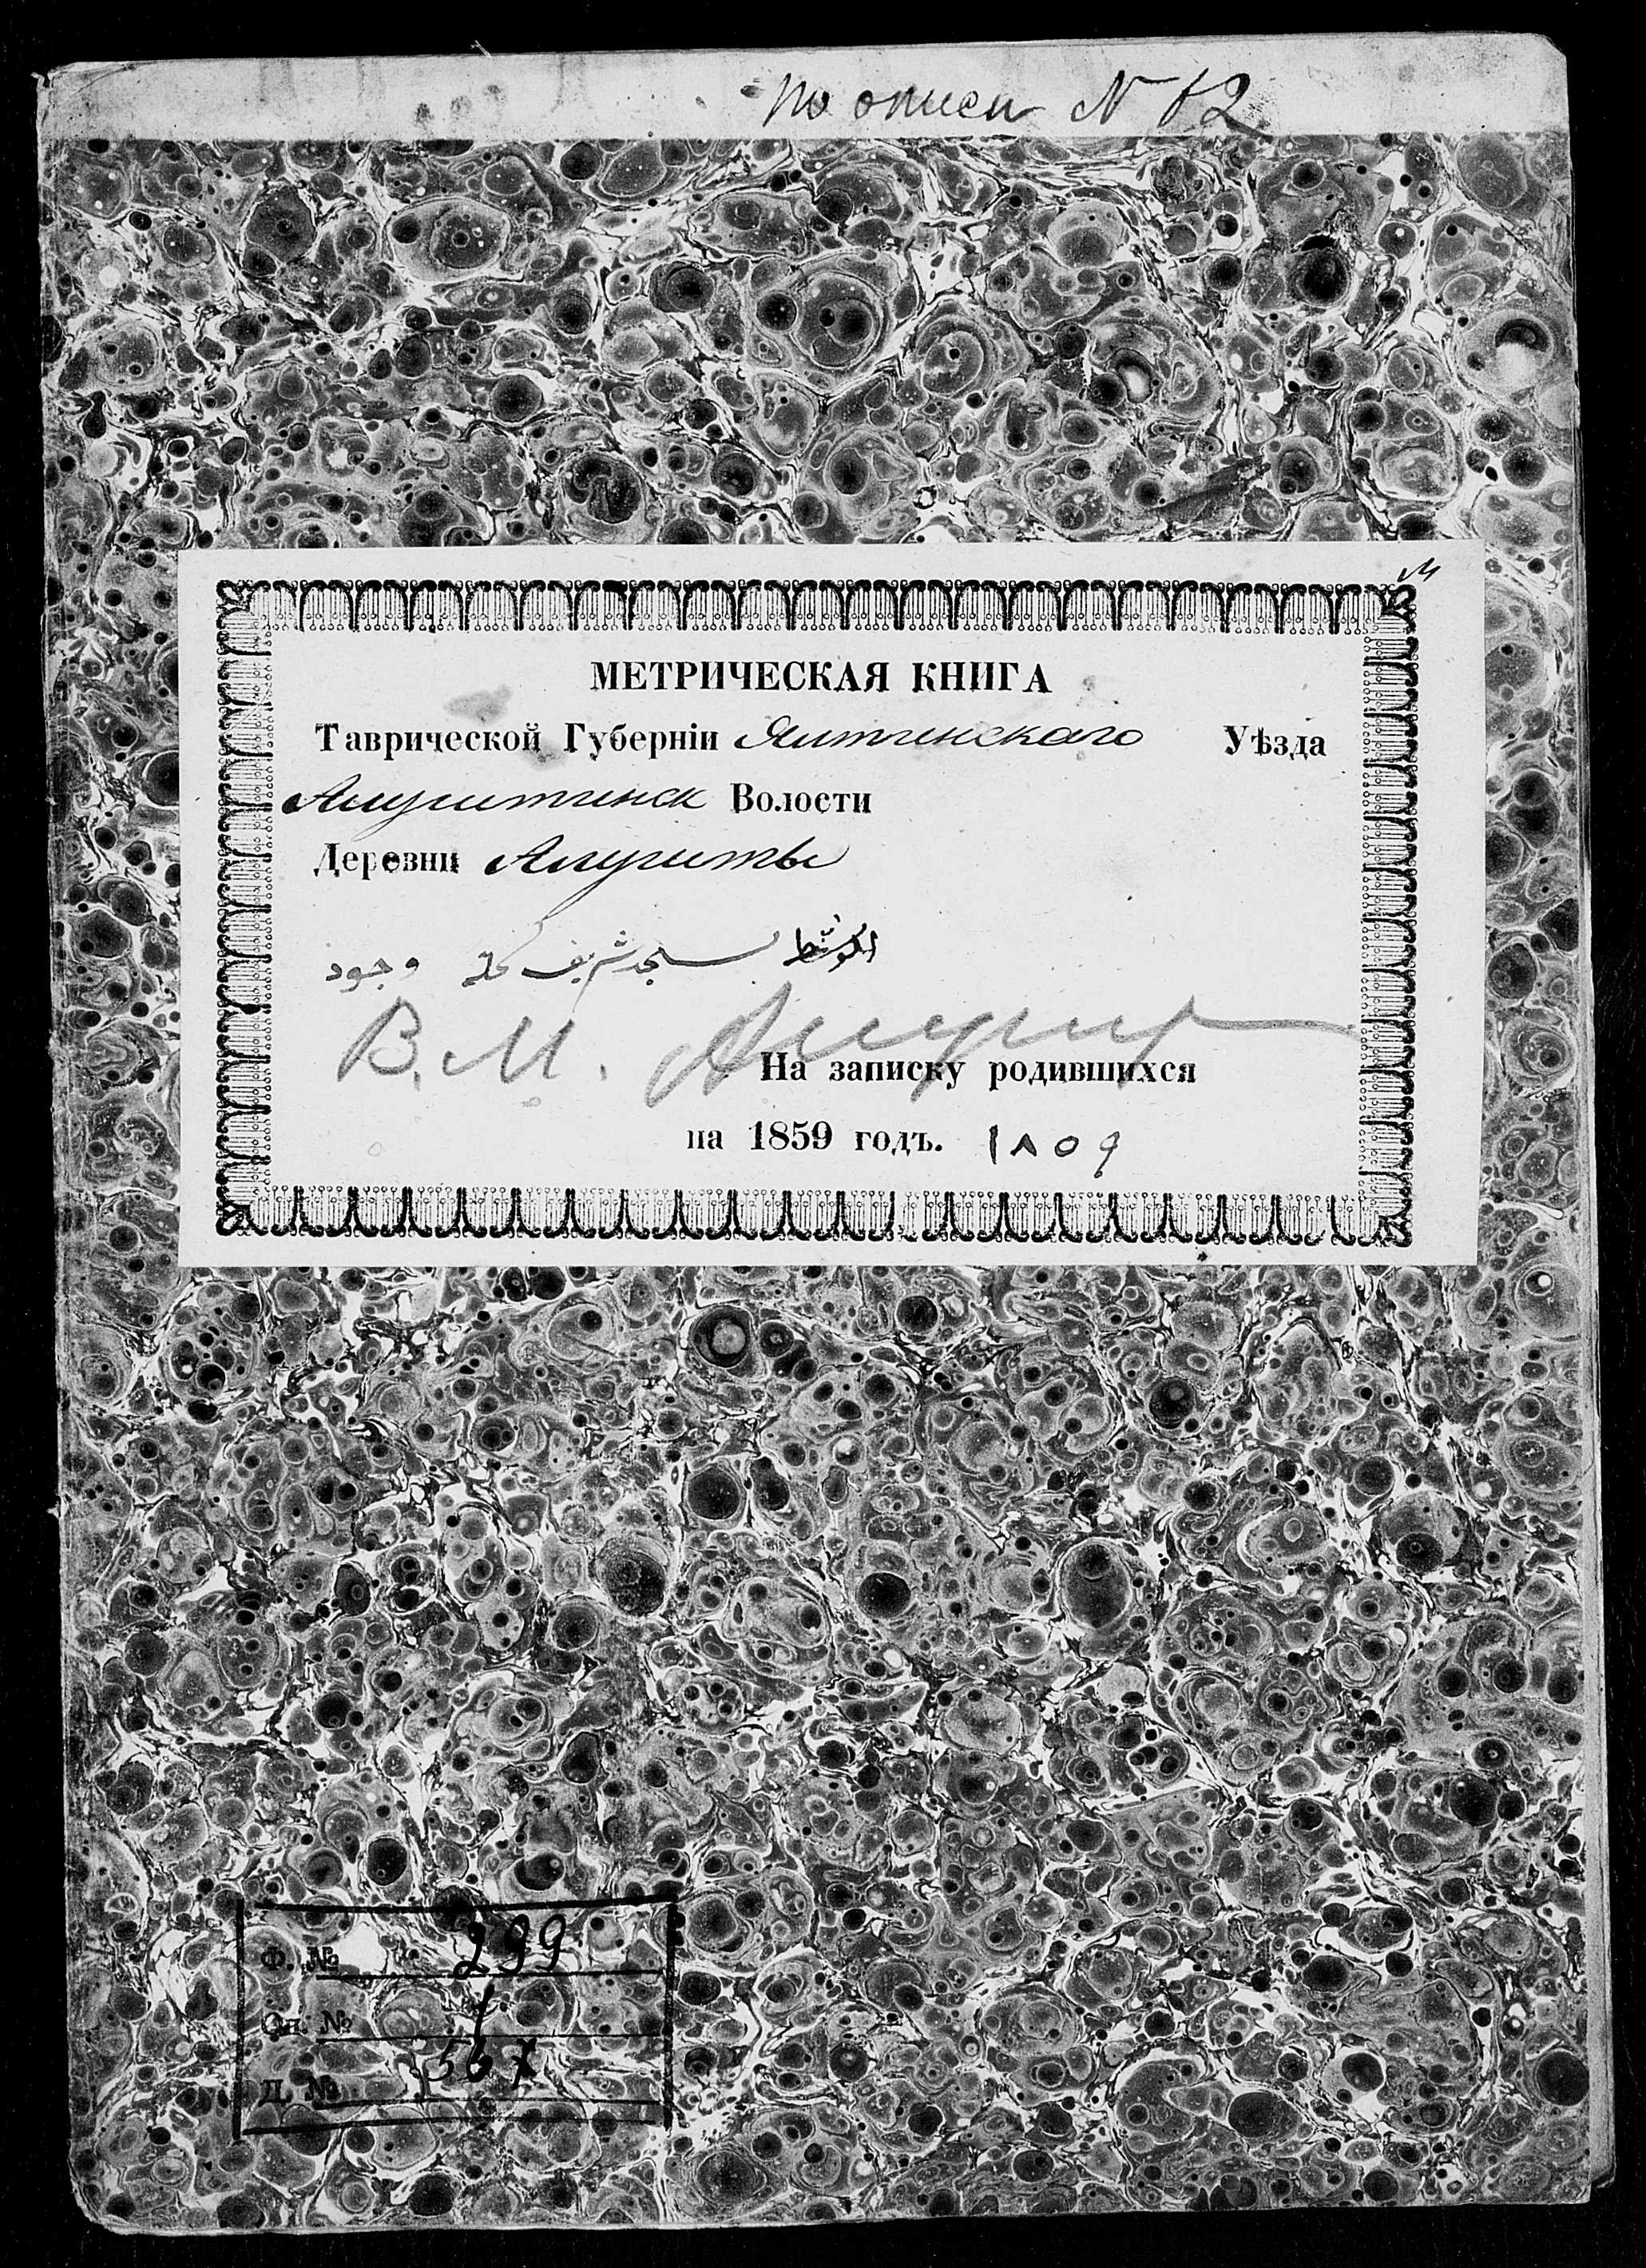 по описи N 12
МЕТРИЧЕСКАЯ КНИГА
Таврической Губерніи Ялтинскаго Уѣзда
Алуштинск Волости
Деревни Алушты
وجود
В. М.
На записку родившихся
на 1859 годъ. ١٨٥٩
Ф. № 299
Оп. № 1
Д. № 56